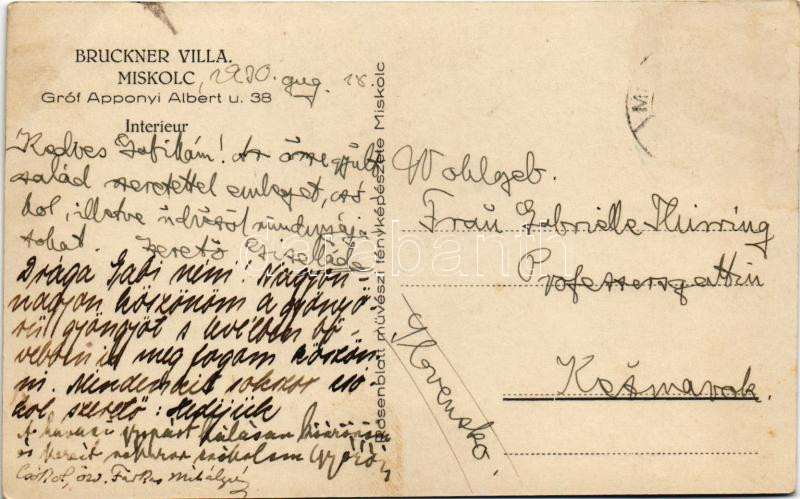 BRUCKNER VILLA.
MISKOLC, 1930. aug. 18.
Gróf Apponyi Albert u. 38
Interieur
Kedves Gabikám! Az összegyült
család szeretettel emleget, csó
kol, illetve üdvözöl mindnyája
tokat. Szerető Gizellád
Drága Gabi néni! Nagyon-
nagyon köszönöm a gyönyö-
rű gyöngyöt s levélben bő-
vebben is meg fogom köszön-
ni. Mindenkit sokszor csó-
kol szerető: Hedijük
A havasi gyopárt hálásan köszönöm
és kezeit sokszor csókolom
Csókol, özv. Farkas Mihályné
Rosenblatt művészi fényképészete Miskolc
M
Wohlgeb.
Frau Gabrielle Thirring
Professorsgattin
Kežmarok.
Slovensko.
darabanth